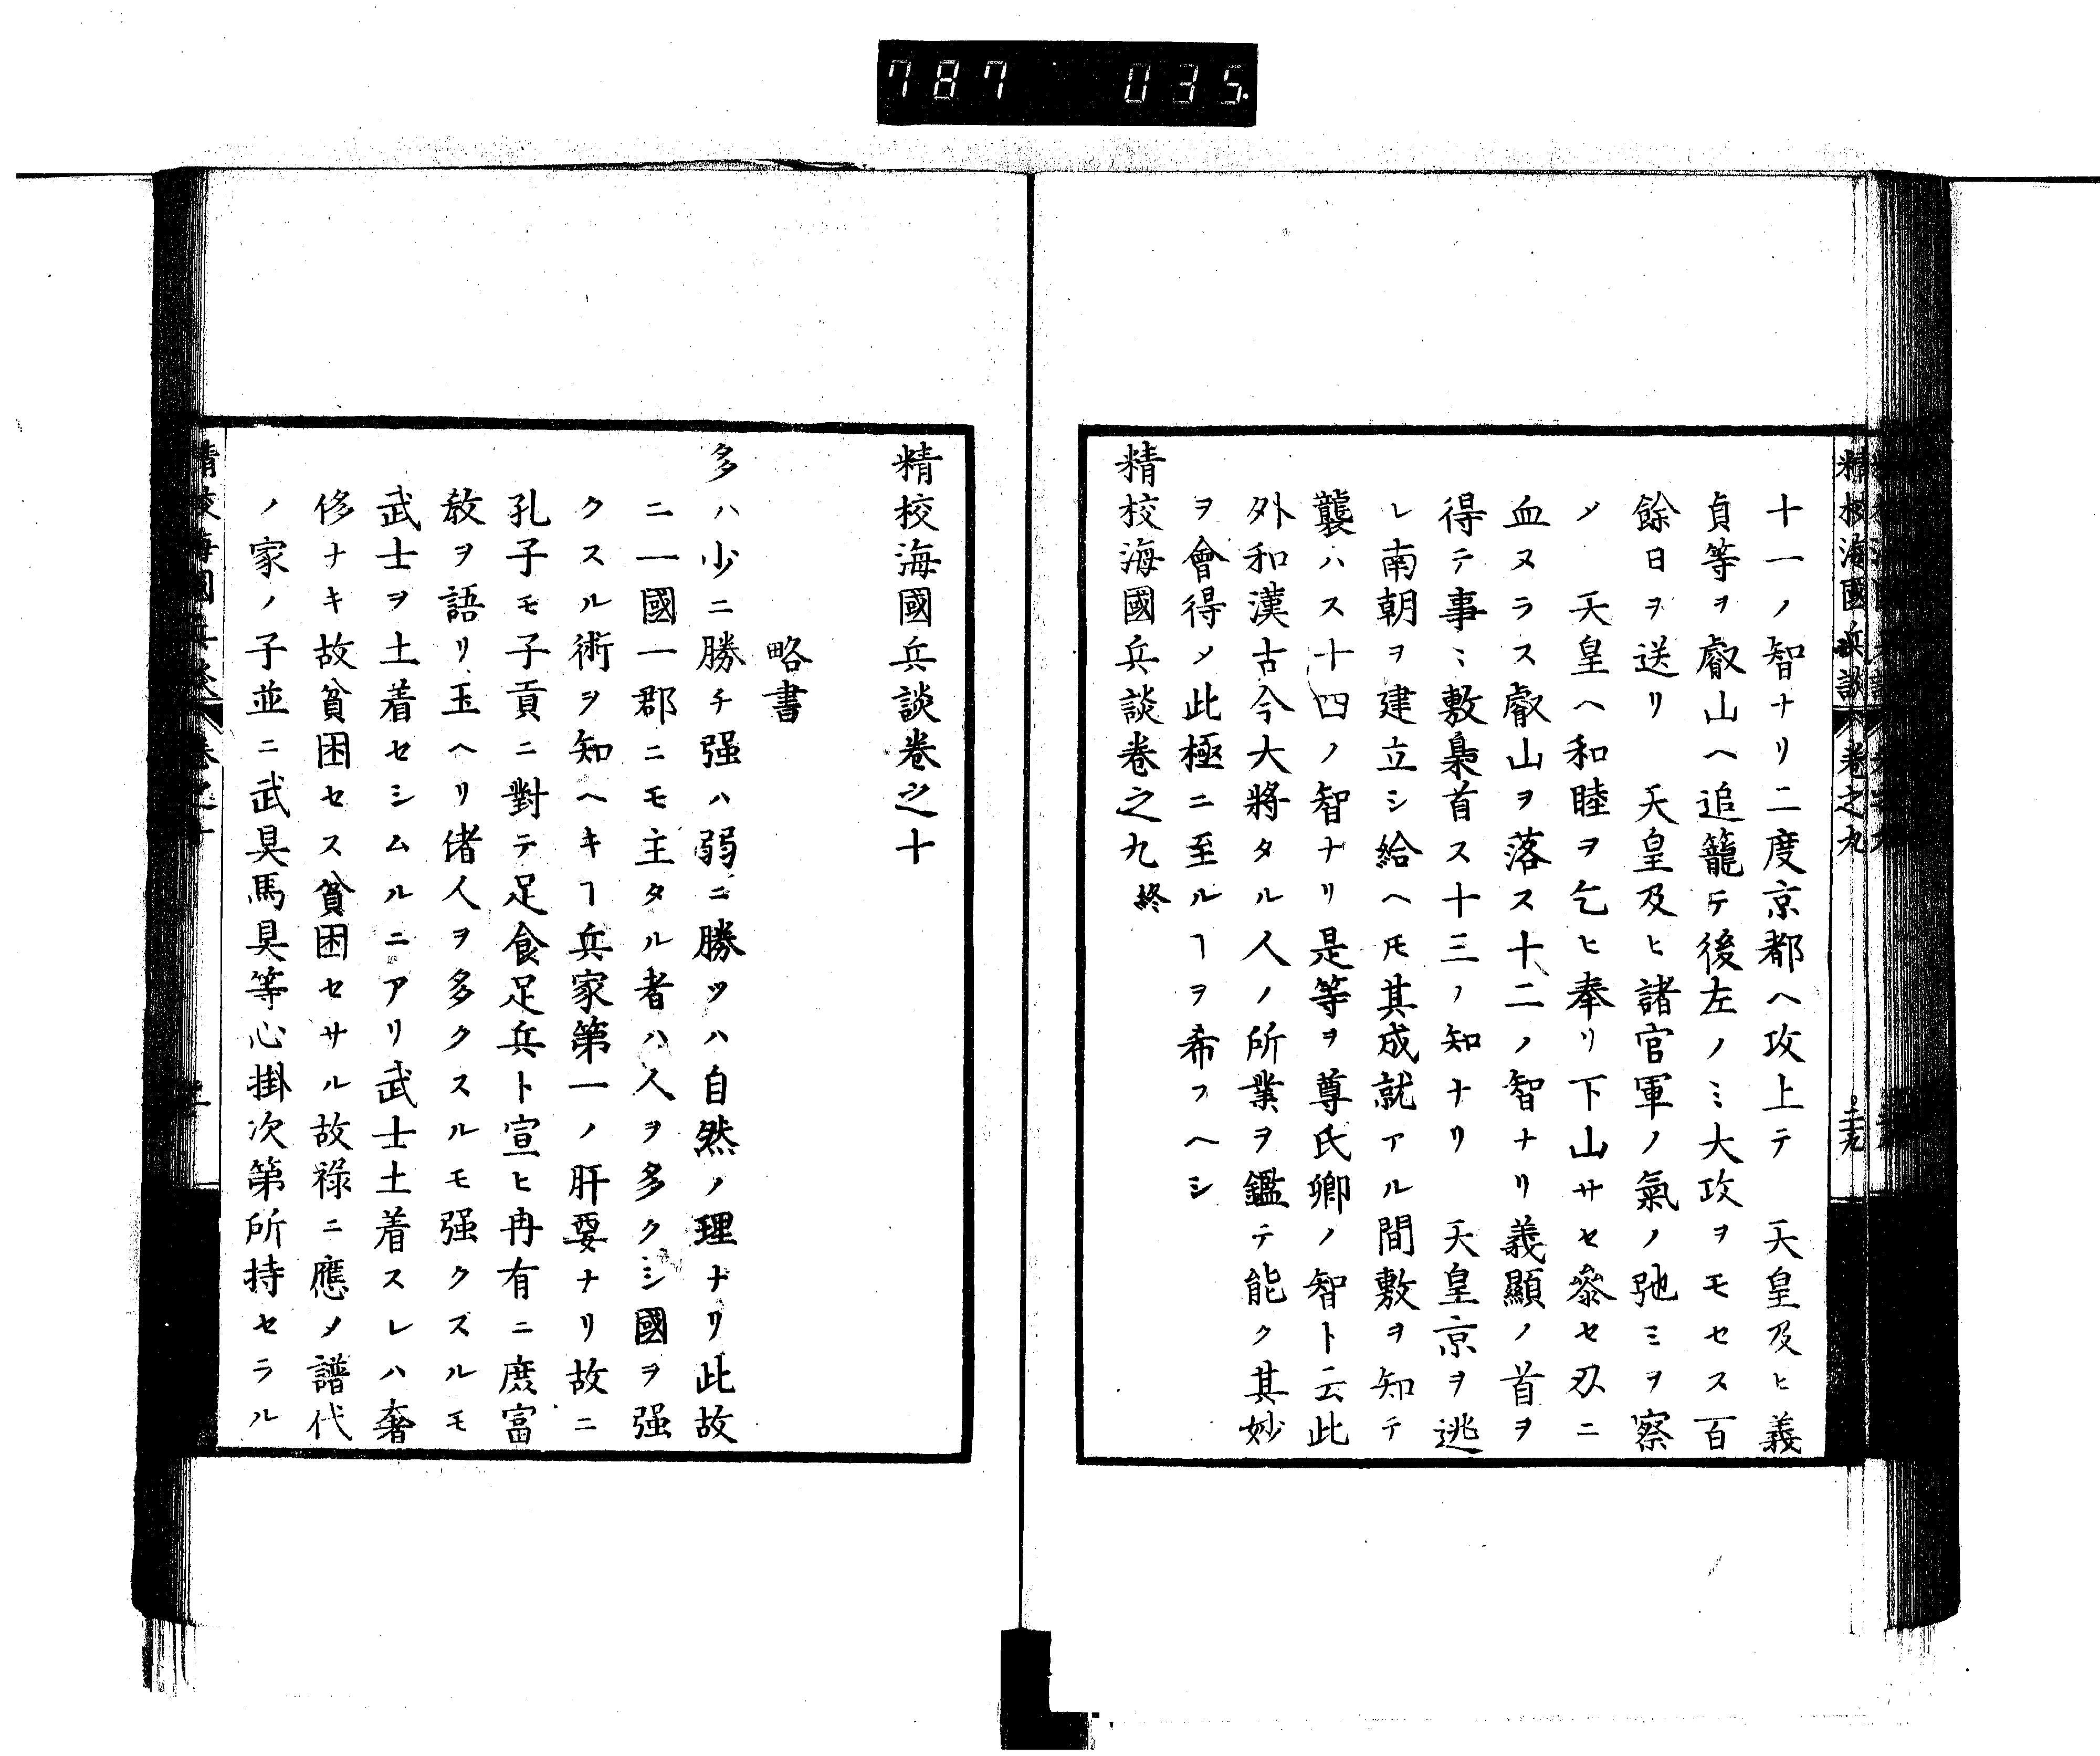 787 035
精校海國兵談 卷之九
十一ノ智ナリ二度京都ヘ攻上テ　天皇及ヒ義
貞等ヲ叡山ヘ追籠テ後左ノミ大攻ヲモセス百
餘日ヲ送リ　天皇及ヒ諸官軍ノ氣ノ弛ミヲ察
メ　天皇ヘ和睦ヲ乞ヒ奉リ下山サセ叅セ刄ニ
血ヌラス叡山ヲ落ス十二ノ智ナリ義顯ノ首ヲ
得テ事〻敷梟首ス十三ノ知ナリ　天皇京ヲ逃
レ南朝ヲ建立シ給ヘ𪜈其成就アル間敷ヲ知テ
襲ハス十四ノ智ナリ是等ヲ尊氏卿ノ智ト云此
外和漢古今大將タル人ノ所業ヲ鑑テ能ク其妙
ヲ會得メ此極ニ至ルヿヲ希フヘシ
精校海國兵談卷之九終
精校海國兵談卷之十
略書
多ハ少ニ勝チ强ハ弱ニ勝ツハ自然ノ理ナリ此故
ニ一國一郡ニモ主タル者ハ人ヲ多クシ國ヲ强
クスル術ヲ知ヘキヿ兵家第一ノ肝要ナリ故ニ
孔子モ子貢ニ對テ足食足兵ト宣ヒ冉有ニ庶富
敎ヲ語リ玉ヘリ偖人ヲ多クスルモ强クスルモ
武士ヲ土着セシムルニアリ武士土着スレハ奢
侈ナキ故貧困セス貧困セサル故祿ニ應メ譜代
ノ家ノ子並ニ武具馬具等心掛次第所持セラル
精校海國兵談 卷之十